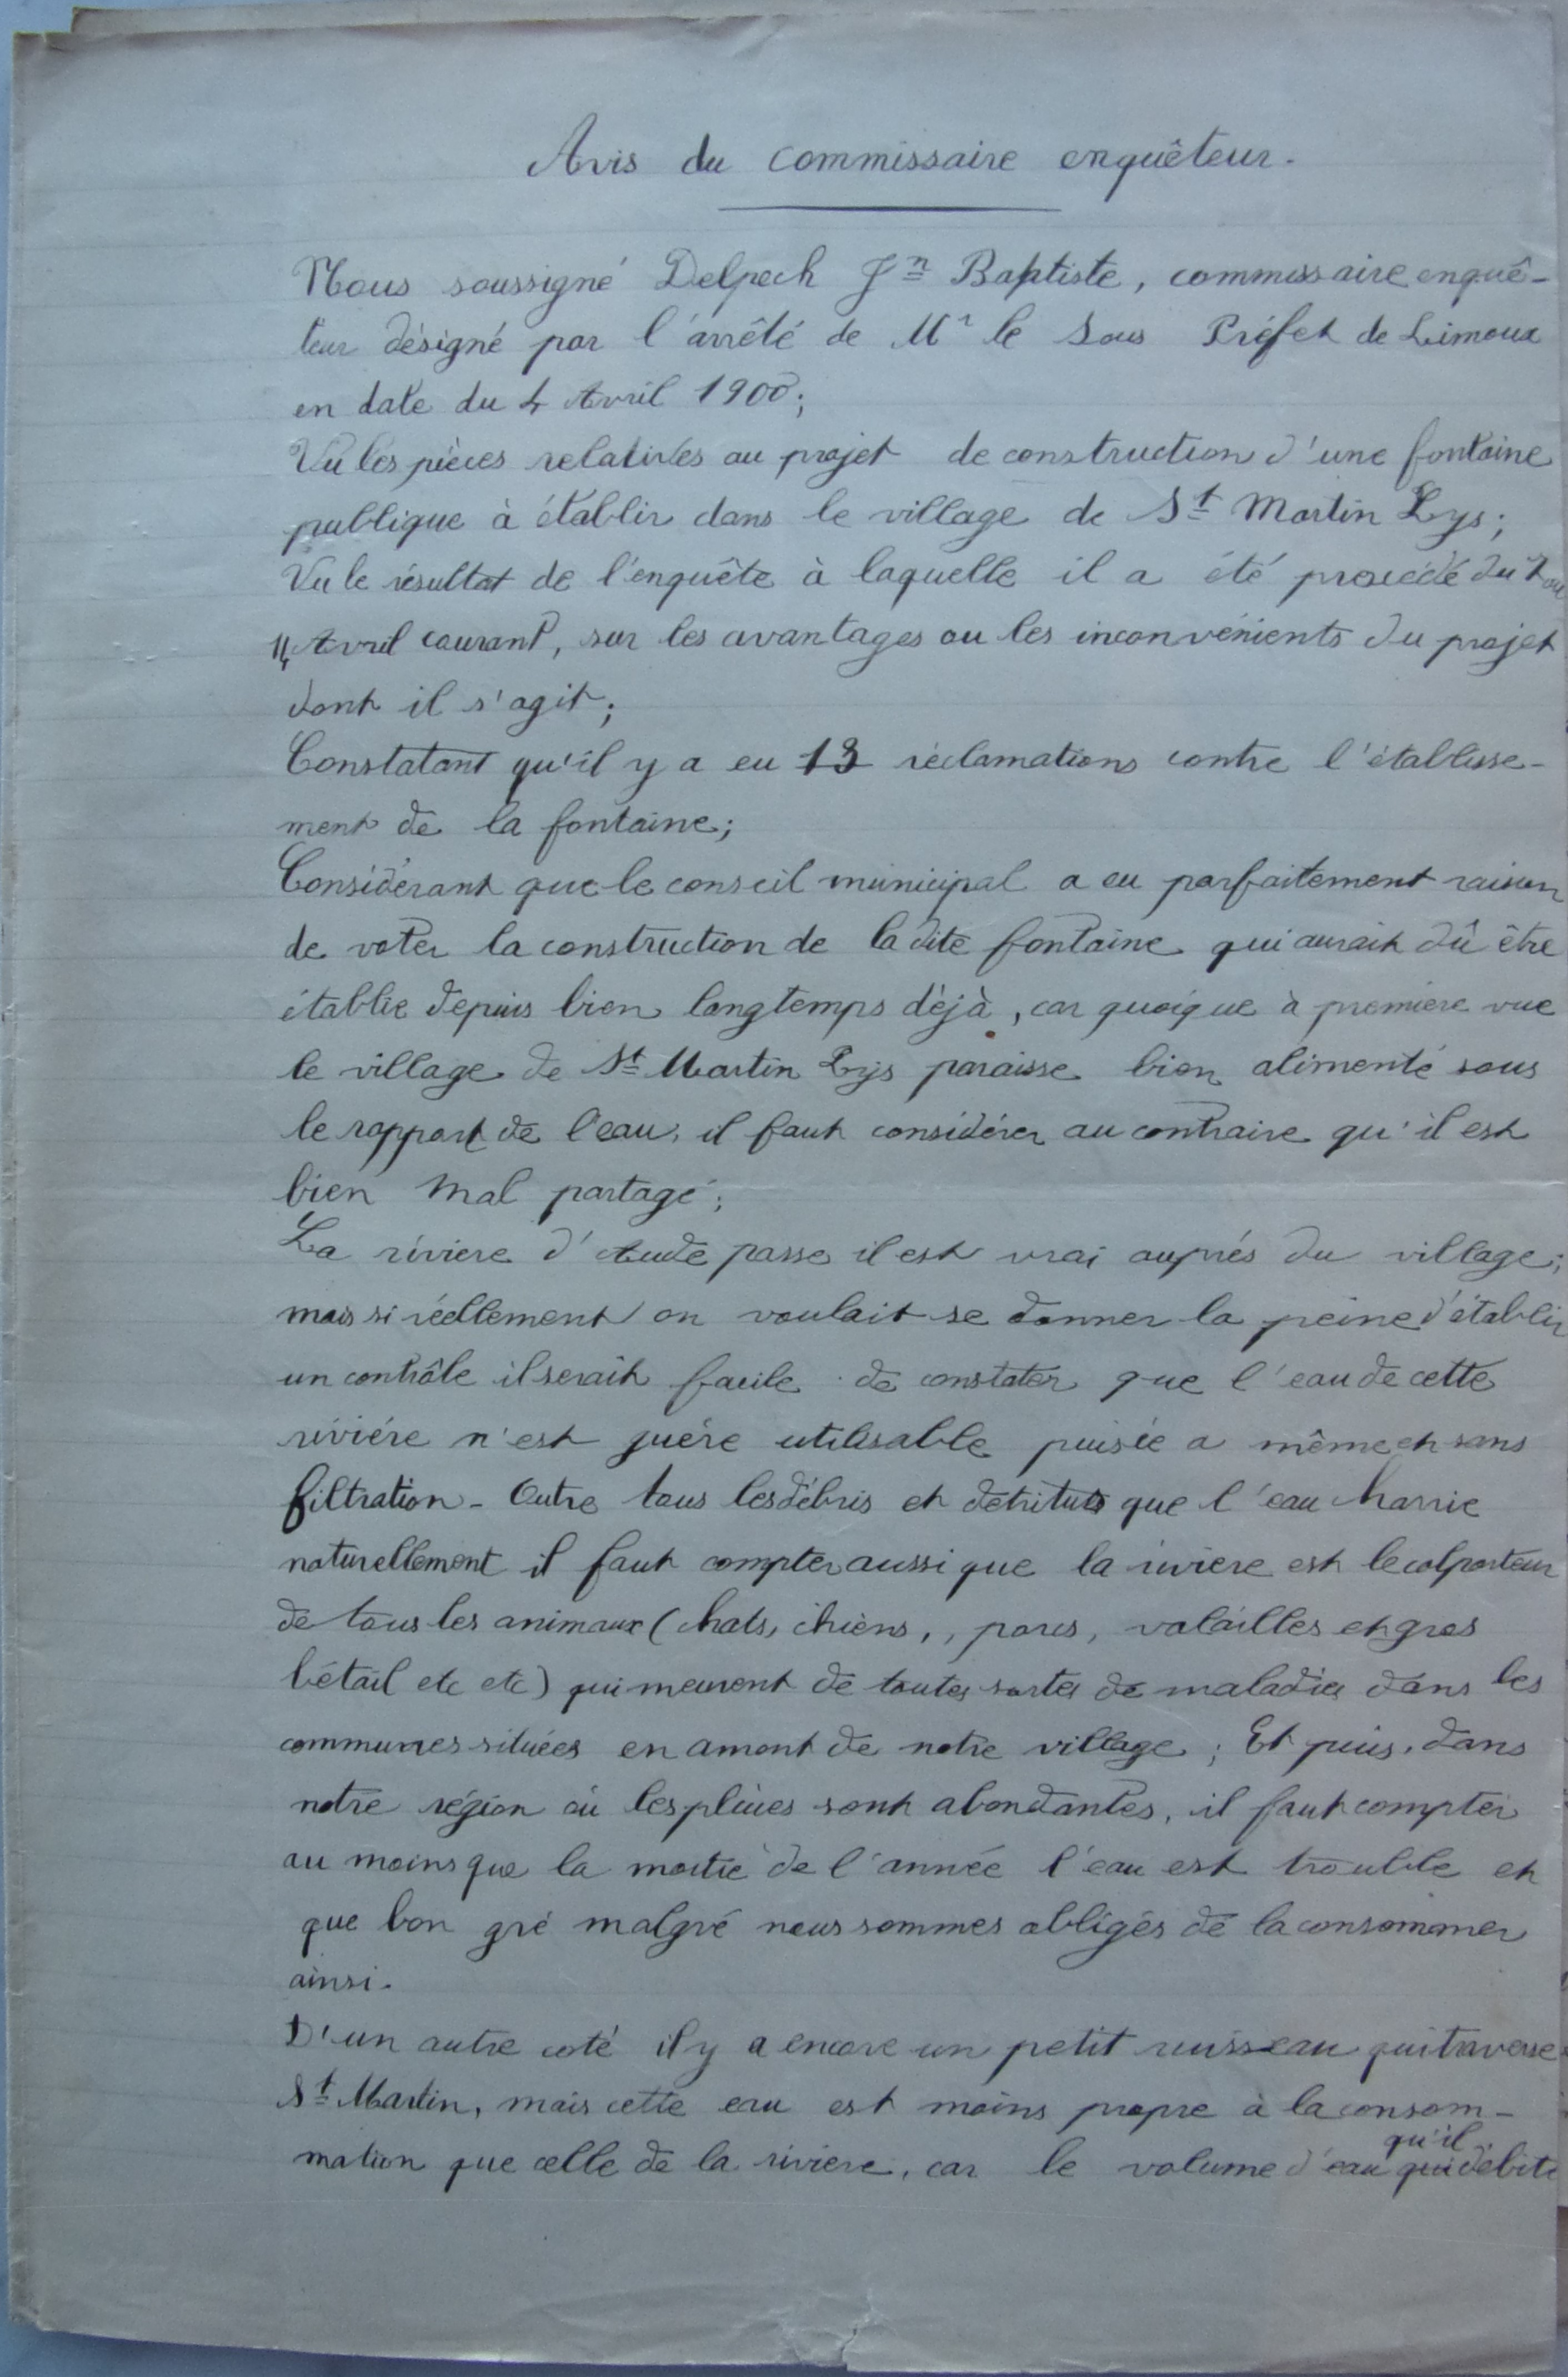 Avis du commissaire enquêteur.
Nous soussigné Delpech Jn Baptiste, commissaire enquê-
teur désigné par l'arrêté de Mr le Sous Préfet de Limoux
en date du 4 Avril 1900;
Vu les pièces relatives au projet de construction d'une fontaine
publique à établir dans le village de St Martin Lys;
Vu le résultat de l'enquête à laquelle il a été procédé du
Avril courant, sur les avantages ou les inconvénients du projet
dont il s'agit;
Constatant qu'il y a eu 13 réclamations contre l'établisse-
ment de la fontaine;
Considérant que le conseil municipal a eu parfaitement raison
de voter la construction de la dite fontaine qui aurait dû être
établie depuis bien longtemps déjà, car quoique à première vue
le village de St Martin Lys paraisse bien alimenté sous
le rapport de l'eau, il faut considérer au contraire qu'il est
bien mal partagé;
La rivière d'Aude passe il est vrai auprés du village;
mais si réellement on voulait se donner la peine d'établir
un contrôle il serait facile de constater que l'eau de cette
riviére n'est guére utilisable puisée a même et sans
filtration - Outre tous les débris et detritus que l'eau charrie
naturellement il faut compter aussi que la riviere est le colporteur
de tous les animaux (chats, chiens, , porcs, volailles et gros
bétail etc etc) qui meurent de toutes sortes de maladies dans les
communes situées en amont de notre village; Et puis, dans
notre région où les pluies sont abondantes, il faut compter
au moins que la moitié de l'année l'eau est trouble et
que bon gré malgré nous sommes obligés de la consommer
ainsi.
D'un autre coté il y a encore un petit ruisseau qui traverse
St Martin, mais cette eau est moins propre à la consom-
mation que celle de la riviere, car le volume d'eau qu'il débite